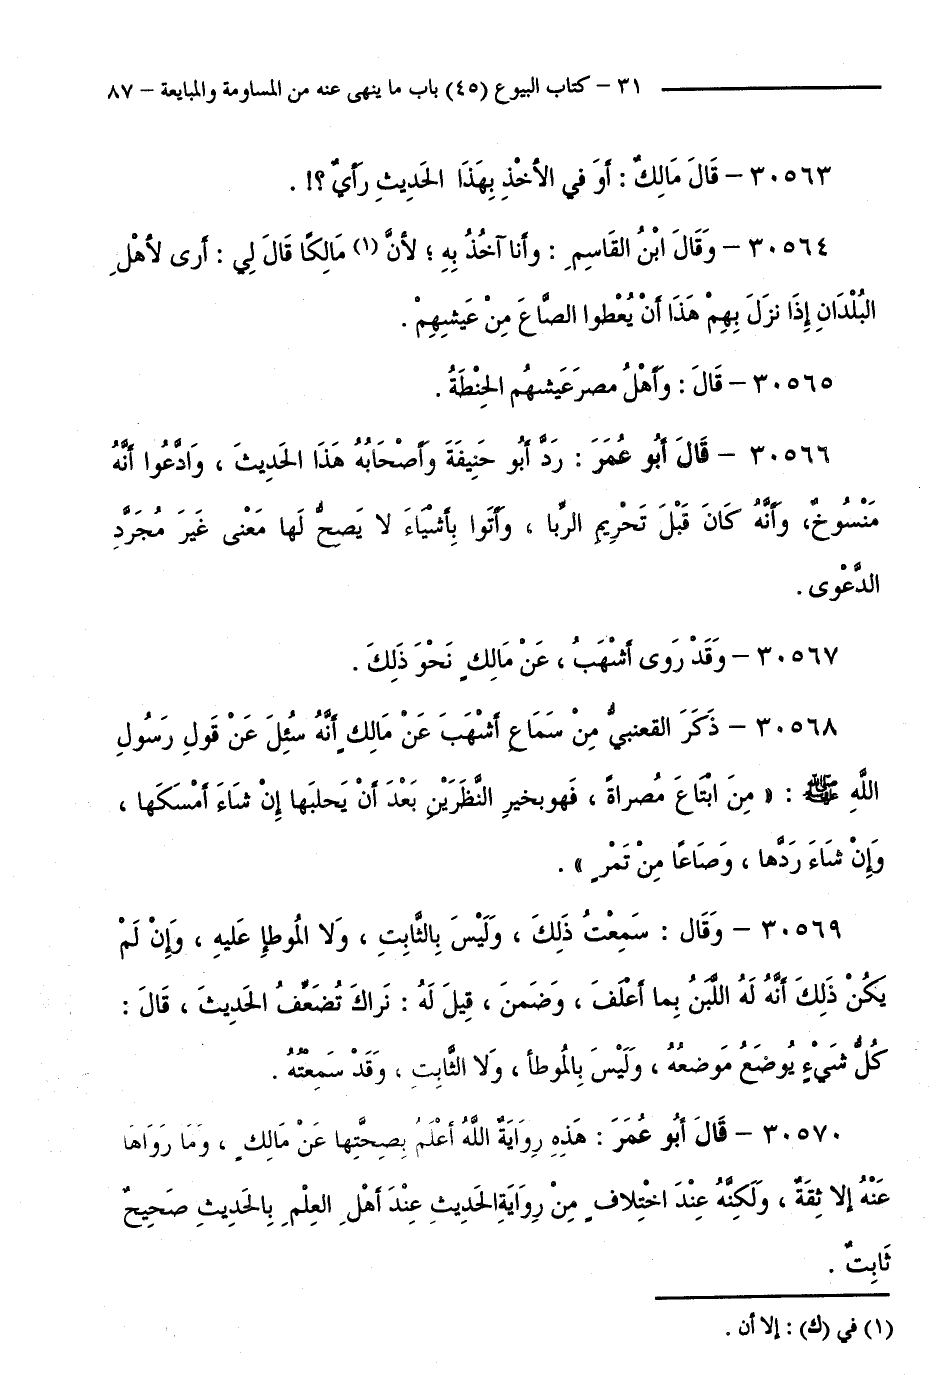 ٣١ - كتاب البيوع (٤٥) باب ما ينهى عنه من المساومة والمبايعة - ٨٧
٣٠٥٦٣ - قَالَ مَالِكٌ : أوَ في الأخْذِ بِهَذَا الحَدِيثِ رَأيٌ ؟! .
٣٠٥٦٤ - وَقَالَ ابْنُ القَاسِمِ : وأنا آخُذُ بِهِ ؛ لأنَّ (١) مَالِكًا قَالَ لِي : أرى لأهْلِ
البُلْدَانِ إِذَا نزَلَ بِهِمْ هَذَا أنْ يُعْطوا الصَّاعَ مِنْ عَيشِهِمْ .
٣٠٥٦٥ - قَالَ : وأَهْلُ مصرَ عَيشهُم الحِنْطَةُ .
٣٠٥٦٦ - قَالَ أَبُو عُمَرَ : رَدَّ أبُو حَنِيفَةَ وأصْحَابُهُ هَذَا الحَدِيثَ ، وَادَّعُوا أنَّهُ
مَنْسُوخٌ، وَأنَّهُ كَانَ قَبْلَ تَحْرِيمِ الرِّبا ، وأتَوا بِأشْيَاءَ لا يَصِحُّ لَها مَعْنى غَيرَ مُجَرَّدِ
الدَّعْوى .
٣٠٥٦٧ - وَقَدْ رَوى أشْهَبُ ، عَنْ مَالِكٍ نَحْوَ ذَلِكَ .
٣٠٥٦٨ - ذَكَرَ القعنبيُّ مِنْ سَمَاعِ أشْهَبَ عَنْ مَالِكٍ أنَّهُ سئِلَ عَنْ قَولِ رَسُولِ
اللَّهِ ﷺ : « مِنَ ابْتَاعَ مُصراةً ، فَهو بخيرِ النَّظَرَيْنِ بَعْدَ أنْ يَحلبَها إنْ شاءَ أمْسَكَها ،
وَإِنْ شاءَ رَدَّها ، وَصَاعًا مِنْ تَمْرٍ » .
٣٠٥٦٩ - وَقَال : سَمِعْتُ ذَلِكَ ، وَلَيْسَ بِالثَّابِتِ ، وَلا المُوطإِ عَليهِ ، وَإِنْ لَمْ
يَكُنْ ذَلِكَ أنَّهُ لَهُ اللَّبَنُ بِما أعْلَفَ ، وَضَمنَ ، قِيلَ لَهُ : نَراكَ تُضَعِّفُ الحَدِيثَ ، قَالَ :
كُلُّ شَيْءٍ يُوضَعُ مَوضعُهُ ، وَلَيْسَ بِالمُوطأ ، وَلا الثَّابِتِ ، وَقَدْ سَمِعْتُهُ .
٣٠٥٧٠ - قَالَ أبُو عُمَرَ : هَذِهِ رِوَايَةٌ اللَّهُ أعْلَمُ بِصِحَّتِها عَنْ مَالِكٍ ، وَمَا رَوَاهَا
عَنْهُ إلا ثِقَةٌ ، وَلَكِنَّهُ عِنْدَ اخْتِلافٍ مِنْ رِوَايَةِ الحَدِيثِ عِنْدَ أهْلِ العِلْمِ بِالحَدِيثِ صَحِيحٌ
ثَابِتٌ .
(١) في (ك) : إلا أن .